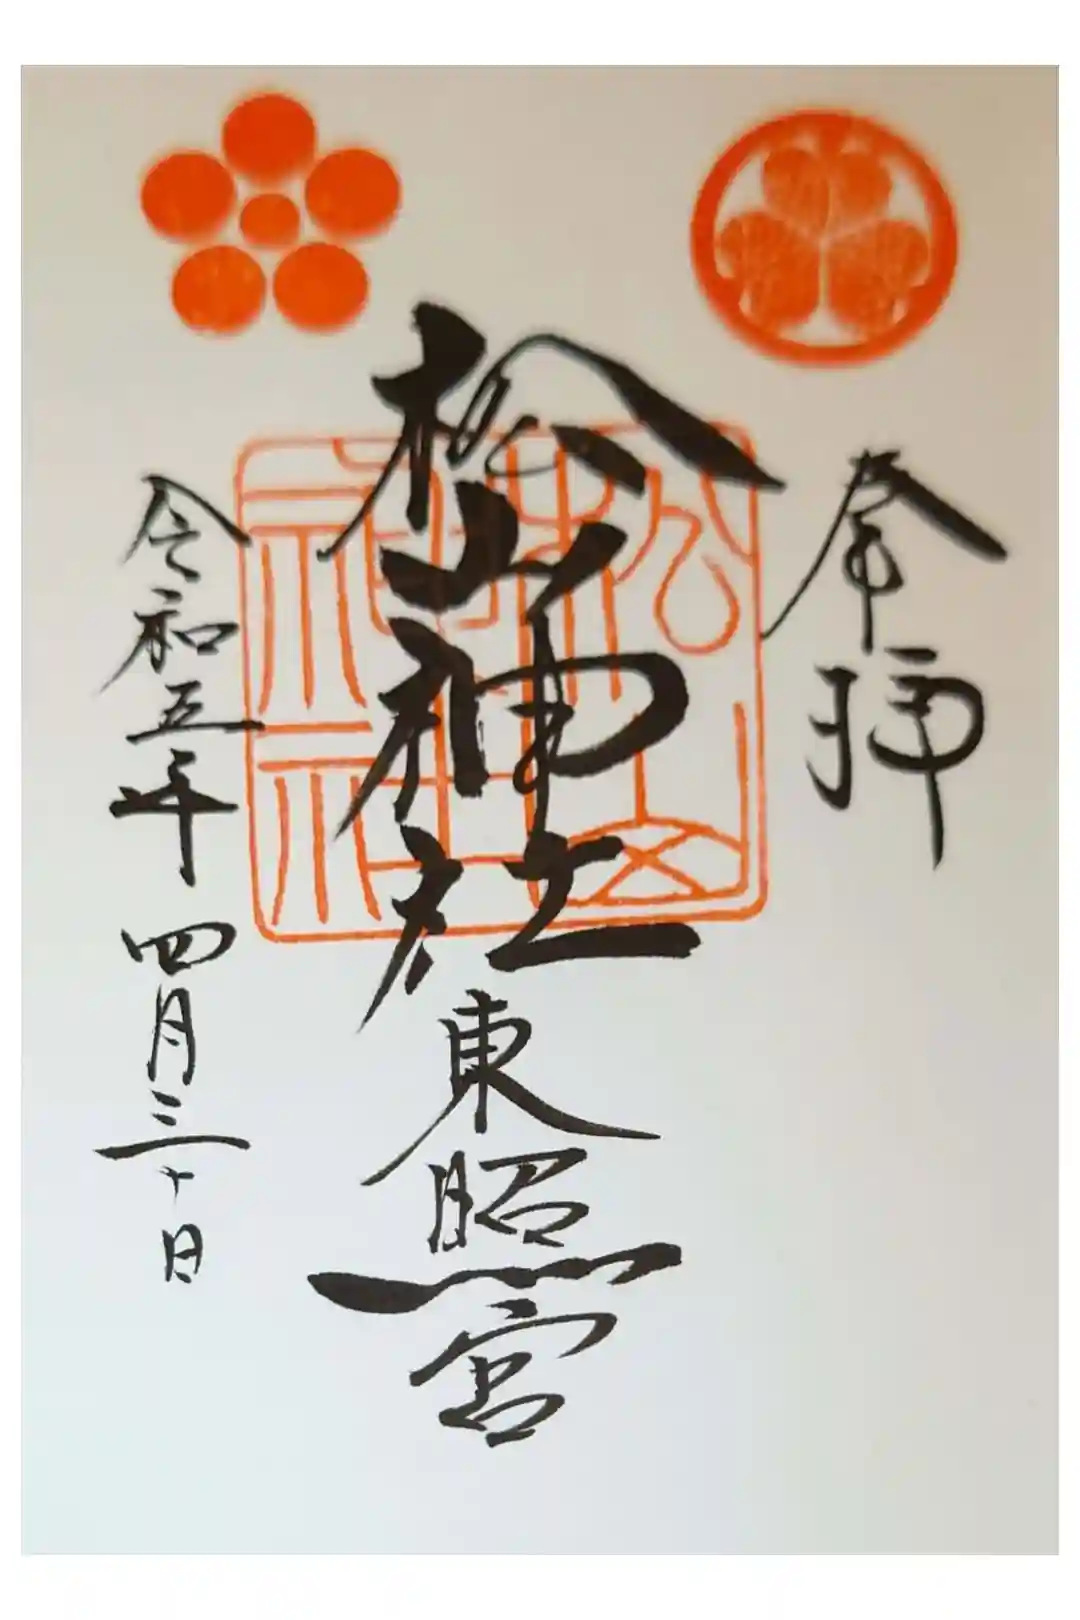 奉拝
松山神社
東照宮
令和五年四月三十日